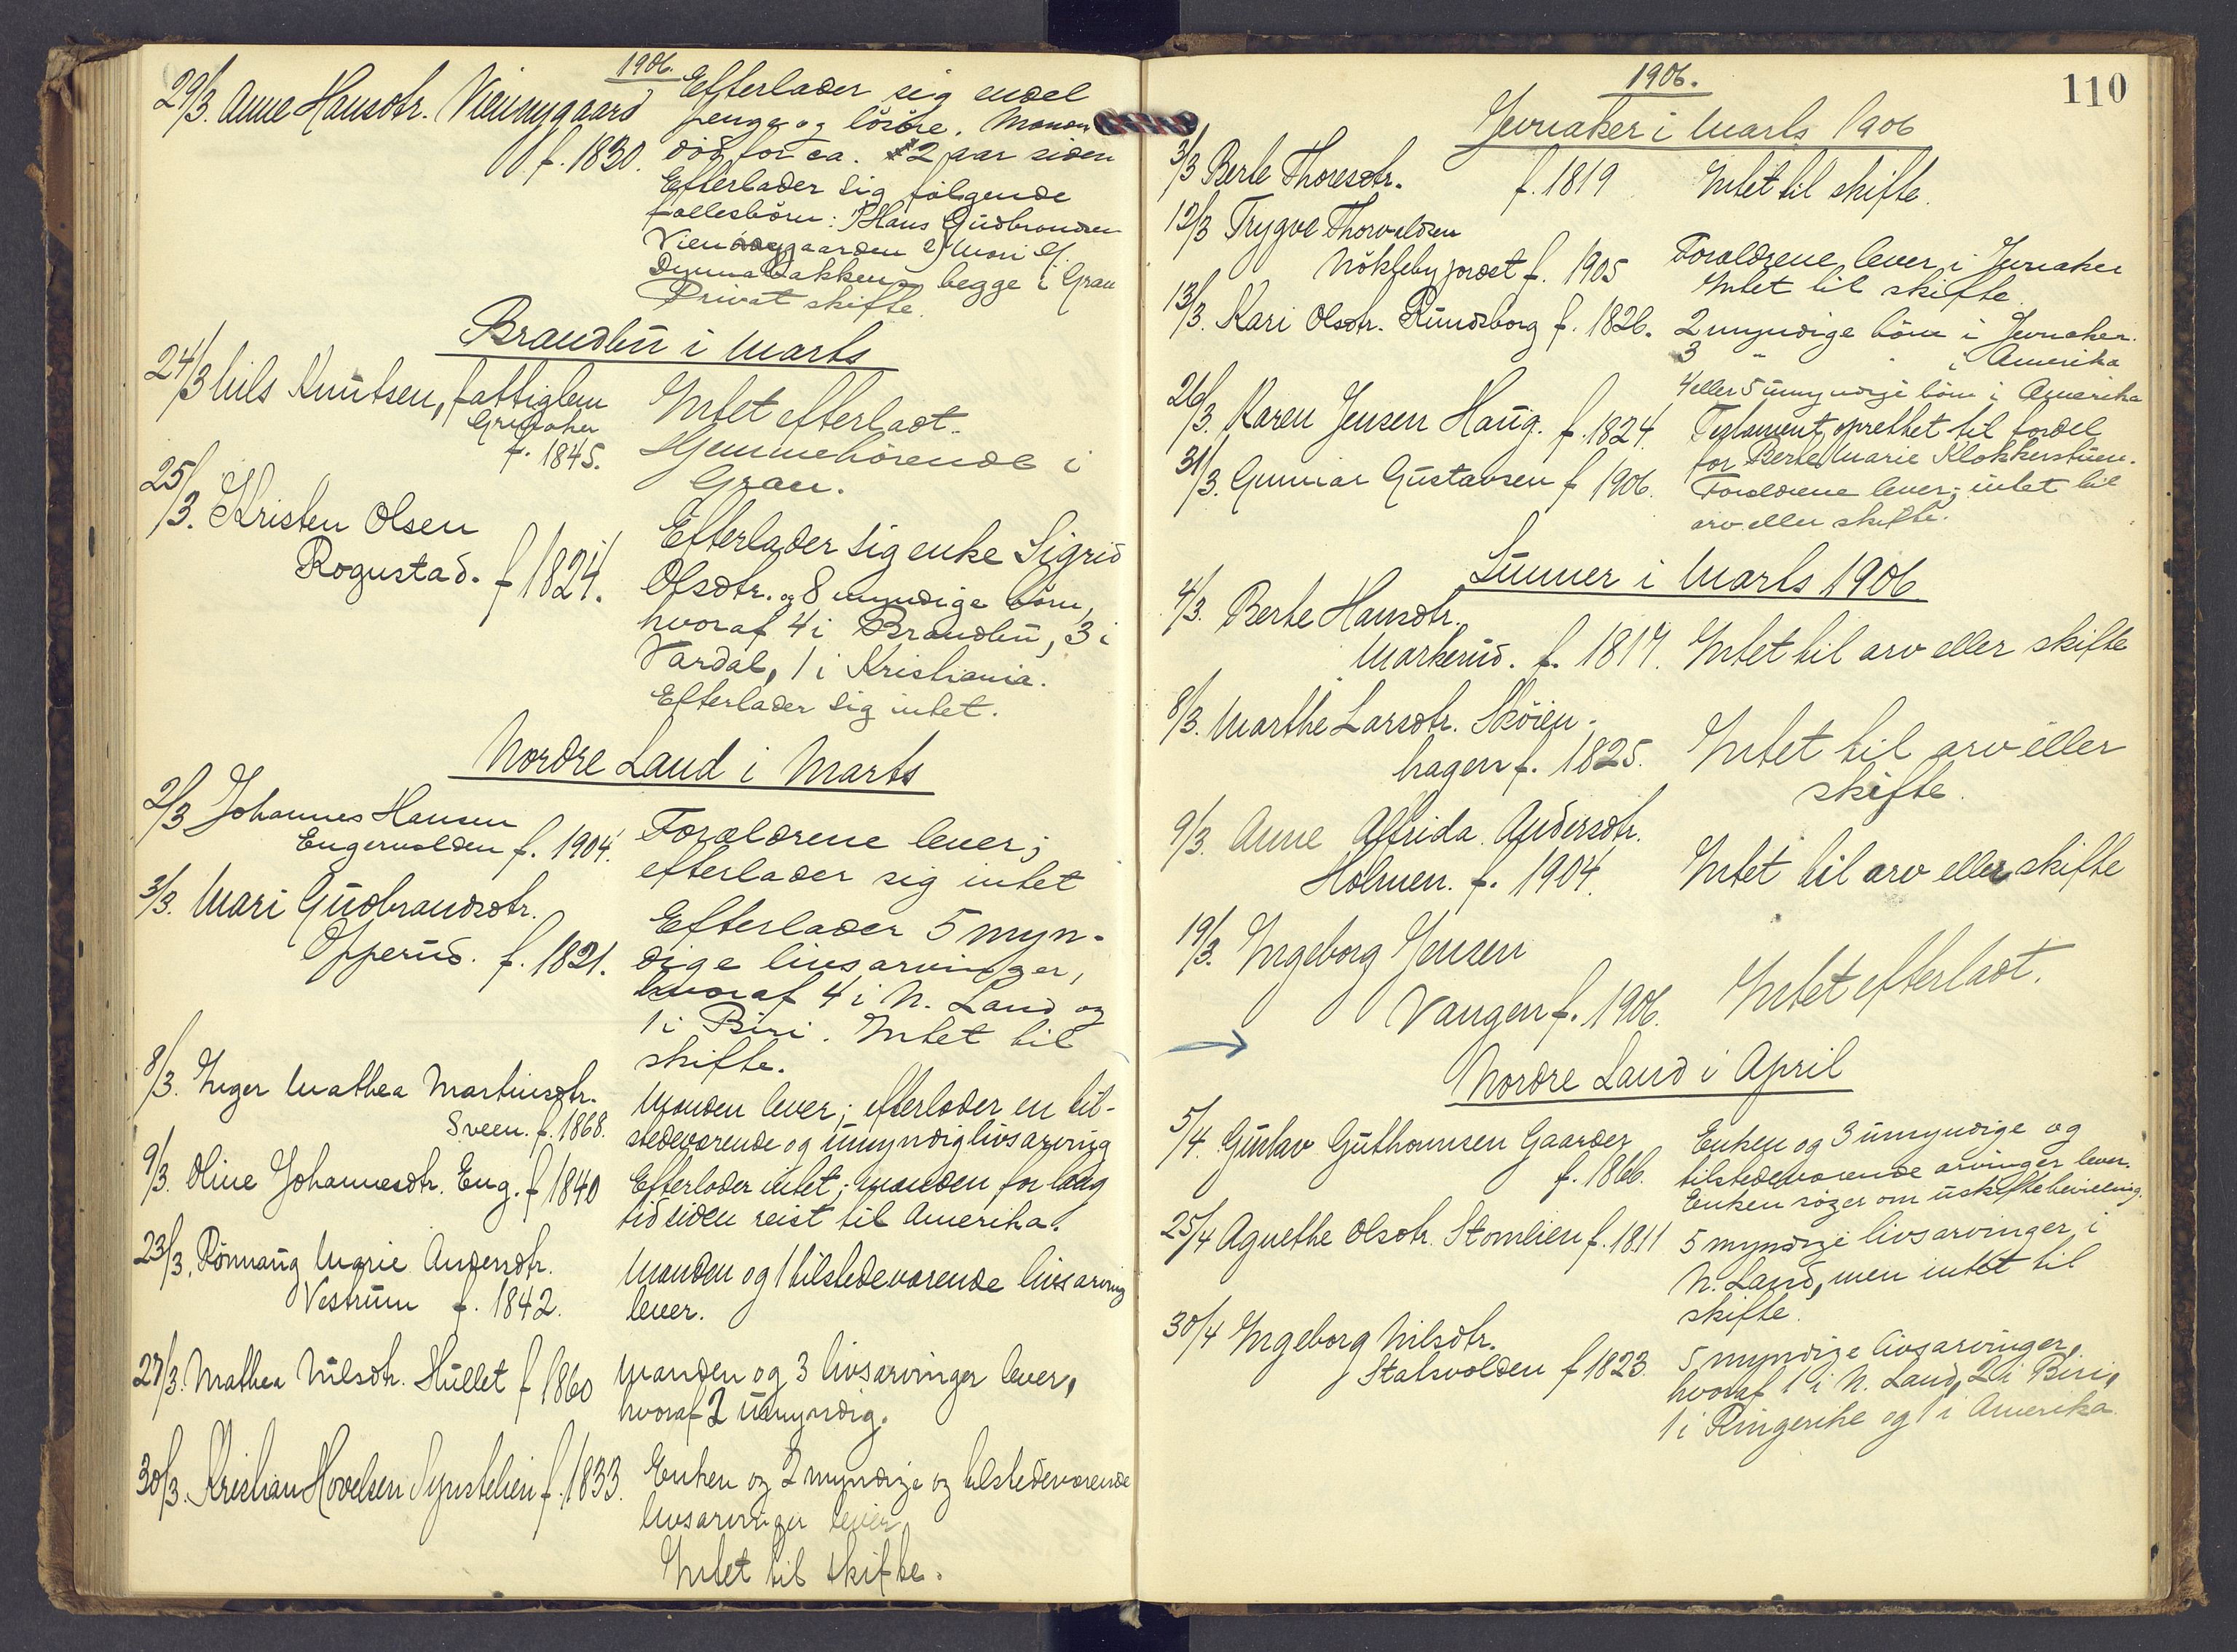 1906.
29/3. Anne Hansdtr. Viennygaard
f. 1830.
Efterlader sig endel
penge og lösöre. Manden
död for ca. 2 aar siden
Efterlader sig fölgende
fællesbörn: 1) Hans Gudbrandsen
Viennygaarden 2) Mari G.
Dynnabakken, begge i Gran
Privat skifte.
Brandbu i Marts
24/3 Nils Knutsen, fattiglem
Grinaker
f. 1845.
Intet efterladt.
Hjemmehörende i
Gran.
25/3. Kristen Olsen
Rognstad. f. 1824.
Efterlader sig enke Sigrid
Olsdtr. og 8 myndige börn,
hvoraf 4 i Brandbu, 3 i
Vardal, 1 i Kristiania.
Efterlader sig intet.
Nordre Land i Marts
2/3 Johannes Hansen
Engernolden f. 1904.
Forældrene lever;
efterlader sig intet
3/3. Mari Gudbrandsdtr.
Opperud. f. 1821.
Efterlader 5 myn-
dige livsarvinger,
hvoraf 4 i N. Land og
1 i Biri. Intet til
skifte.
8/3. Inger Mathea Martinsdtr.
Sveen. f. 1868.
Manden lever; efterlader en til-
stedeværende og umyndig livsarving
9/3. Oline Johannesdtr. Eng. f. 1840
Efterlader intet; manden for lang
tid siden reist til Amerika.
23/3. Rönnaug Marie Andersdtr.
Vestrum f. 1842.
Manden og 1 tilstedeværende livsarving
lever.
27/3. Mathea Nilsdtr. Hullet f. 1860
Manden og 3 livsarvinger lever,
hvoraf 2 umyndig.
30/3. Kristian Hovelsen Synstelien f. 1833.
Enken og 2 myndige og tilstedeværende
livsarvinger lever
Intet til skifte.
110
1906.
Jevnaker i Marts 1906
3/3 Berte Thoresdtr. f. 1819
Intet til skifte.
12/3 Trygve Thorvaldsen
Nöklebyjordet f. 1905
Forældrene lever i Jevnaker
Intet til skifte.
13/3. Kari Olsdtr. Rundsborg f. 1826.
2 myndige börn i Jevnaker.
3 " " i Amerika
4 eller 5 umyndige börn i Amerika
26/3. Karen Jensen Haug. f. 1824.
Testament oprettet til fordel
for Berte Marie Klokkerstuen.
31/3. Gunnar Gustavsen f. 1906.
Forældrene lever; intet til
arv eller skifte.
Lunner i Marts 1906
4/3. Berte Hansdtr.
Markerud. f. 1817.
Intet til arv eller skifte
8/3. Marthe Larsdtr. Sköien-
hagen f. 1825.
Intet til arv eller
skifte.
9/3. Anne Alfrida Andersdtr.
Holmen. f. 1904.
Intet til arv eller skifte
19/3. Ingeborg Jensen
Vangen f. 1906.
Intet efterladt.
Nordre Land i April
5/4. Gustav Guthormsen Gaarder
f. 1866.
Enken og 3 umyndige og
tilstedeværende arvinger lever.
Enken söger om uskiftebevilling.
25/4 Agnethe Olsdtr. Stomlien f. 1811
5 myndige livsarvinger i
N. Land, men intet til
skifte.
30/4 Ingeborg Nilsdtr.
Stalsvolden f. 1823.
5 myndige livsarvinger,
hvoraf 1 i N. Land, 2 i Biri,
1 i Ringerike og 1 i Amerika